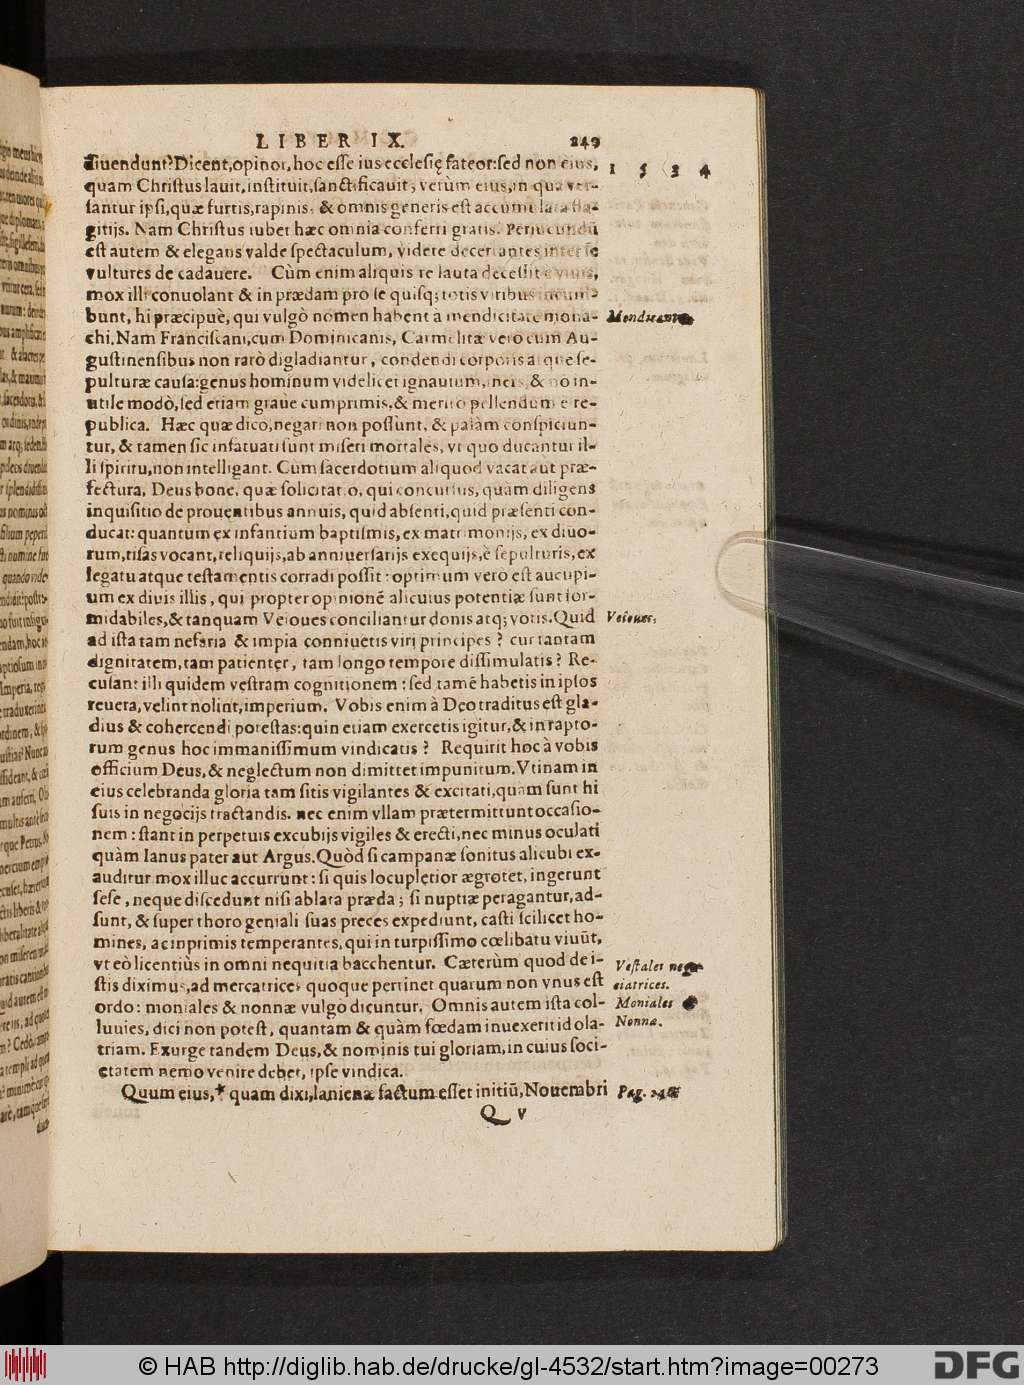 LIBER IX. 249
diuendunt? Dicent, opinor, hoc esse ius ecclesię fateor: sed non eius, 1 5 3 4
quam Christus lauit, instituit, sanctificauit; verùm eius, in qua ver-
santur ipsi, quæ furtis, rapinis, & omnis generis est accumulata fla-
gitijs. Nam Christus iubet hæc omnia conferri gratis. Periucundū
est autem & elegans valde spectaculum, videre decertantes inter se
vultures de cadauere. Cùm enim aliquis re lauta decessit è viuis,
mox illi conuolant & in prædam pro se quisq; totis viribus incum-
bunt, hi præcipuè, qui vulgò nomen habent à mendicitate mona- Mendicantes
chi. Nam Franciscani, cum Dominicanis, Carmelitæ vero cum Au-
gustinensibus non rarò digladiantur, condendi corporis atque se-
pulturæ causa: genus hominum videlicet ignauum, iners, & no in-
utile modò, sed etiam graue cumprimis, & merito pellendum è re-
publica. Hæc quæ dico, negari non possunt, & palàm conspiciun-
tur, & tamen sic infatuati sunt miseri mortales, vt quo ducantur il-
li spiritu, non intelligant. Cum sacerdotium aliquod vacat aut præ-
fectura, Deus bone, quæ solicitatio, qui concursus, quàm diligens
inquisitio de prouentibus annuis, quid absenti, quid præsenti con-
ducat: quantum ex infantium baptismis, ex matrimonijs, ex diuo-
rum, tisas vocant, reliquijs, ab anniuersarijs exequijs, è sepulturis, ex
legatu atque testamentis corradi possit: optimum verò est aucupi-
um ex diuis illis, qui propter opinionē alicuius potentiæ sunt for-
midabiles, & tanquam Veioues conciliantur donis atq; votis. Quid Veioues.
ad ista tam nefaria & impia conniuetis viri principes? cur tantam
dignitatem, tam patienter, tam longo tempore dissimulatis? Re-
cusant illi quidem vestram cognitionem: sed tamē habetis in ipsos
reuera, velint nolint, imperium. Vobis enim à Deo traditus est gla-
dius & cohercendi potestas: quin etiam exercetis igitur, & in rapto-
rum genus hoc immanissimum vindicatis? Requirit hoc à vobis
officium Deus, & neglectum non dimittet impunitum. Vtinam in
eius celebranda gloria tam sitis vigilantes & excitati, quam sunt hi
suis in negocijs tractandis. nec enim vllam prætermittunt occasio-
nem: stant in perpetuis excubijs vigiles & erecti, nec minus oculati
quàm Ianus pater aut Argus. Quòd si campanæ sonitus alicubi ex-
auditur mox illuc accurrunt: si quis locupletior ægrotet, ingerunt
sese, neque discedunt nisi ablata præda; si nuptiæ peragantur, ad-
sunt, & super thoro geniali suas preces expediunt, casti scilicet ho-
mines, ac inprimis temperantes, qui in turpissimo cœlibatu viuūt,
vt eò licentiùs in omni nequitia bacchentur. Cæterùm quod de i- Vestales nego
stis diximus, ad mercatrices quoque pertinet quarum non vnus est ciatrices.
ordo: moniales & nonnæ vulgo dicuntur. Omnis autem ista col- Moniales &
luuies, dici non potest, quantam & quàm fœdam inuexerit idola- Nonnæ.
triam. Exurge tandem Deus, & nominis tui gloriam, in cuius soci-
etatem nemo venire debet, ipse vindica.
Quum eius, * quam dixi, lanienæ factum esset initiū, Nouembri Pag.
Q v
© HAB http://diglib.hab.de/drucke/gl-4532/start.htm?image=00273 DFG